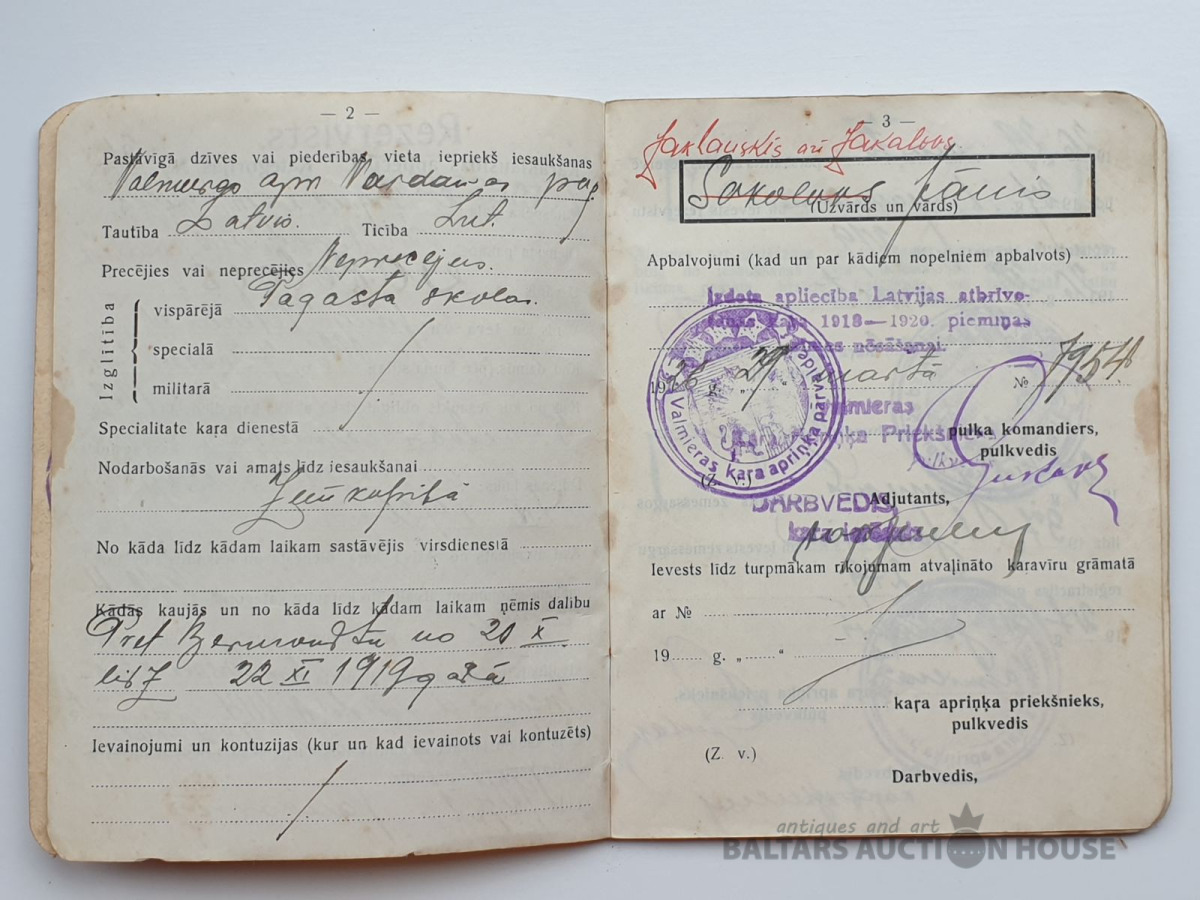 — 2 —
Pastāvīgā dzīves vai piederības vieta iepriekš iesaukšanas
apr pag
Tautība Latvis. Ticība Lut.
Precējies vai neprecējies Neprecējies.
Izglītība
vispārējā Pagasta skolas.
speciālā
militarā
Specialitate kaŗa dienestā
Nodarbošanās vai amats līdz iesaukšanai
Zemkopībā
No kāda līdz kādam laikam sastāvējis virsdienestā
Kādās kaujās un no kāda līdz kādam laikam ņēmis dalību
Pret Bermondtu no 20 X
līdz 22 XI 1919 gadā
Ievainojumi un kontuzijas (kur un kad ievainots vai kontuzēts)
— 3 —
Jaklauskis arī Jakalovs
Jānis
(Uzvārds un vārds)
Apbalvojumi (kad un par kādiem nopelniem apbalvots)
Izdota apliecība Latvijas atbrīvo-
šanas kaŗa 1918—1920. piemiņas
zīmes nēsāšanai.
192 g. „29" martā № 7954
Valmieras
kaŗa apriņķa Priekšnieks
Valmieras kaŗa apriņķa pārvalde
pulka komandiers,
pulkvedis
(Z. v.)
DARBVEDIS,
Adjutants,
Ievests līdz turpmākam rīkojumam atvaļināto kaŗavīru grāmatā
ar №
19 g. „ "
kaŗa apriņķa priekšnieks,
pulkvedis
(Z. v.)
Darbvedis,
antiques and art
BALTARS AUCTION HOUSE